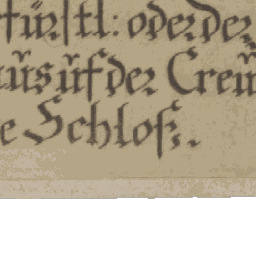 fürstl: oder der
aus uf der Crem
e Schloß.